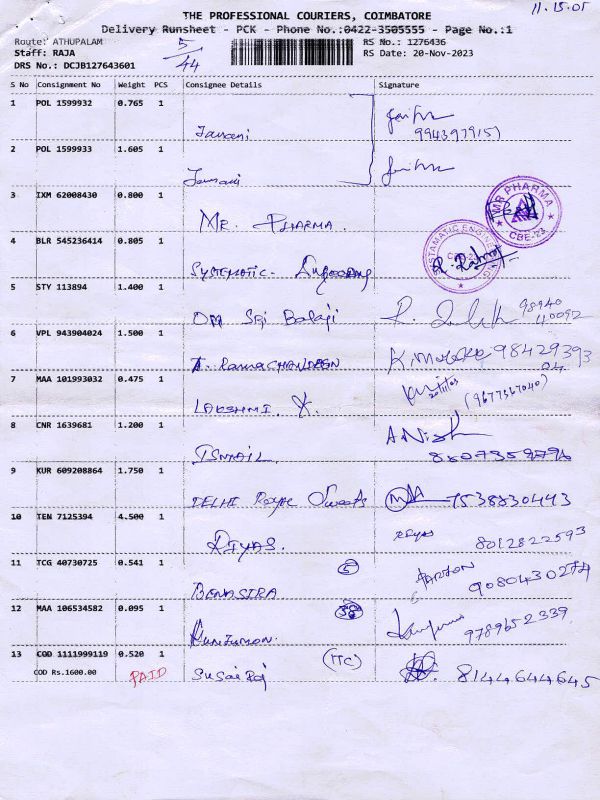 11.15.05
THE PROFESSIONAL COURIERS, COIMBATORE
Delivery Runsheet - PCK - Phone No.:0422-3505555 - Page No.:1
Route: ATHUPALAM 5/44 RS No.: 1276436
Staff: RAJA RS Date: 20-Nov-2023
DRS No.: DCJB127643601
S No Consignment No Weight PCS Consignee Details Signature
1 POL 1599932 0.765 1
2 POL 1599933 1.605 1
3 IXM 62008430 0.800 1
MR. PHARMA.
MR PHARMA
CBE-23
4 BLR 545236414 0.805 1
SYSTEMATIC. Engineering
5 STY 113894 1.400 1
OM Sri Balaji 98940
6 VPL 943904024 1.500 1
T. RamaCHANDRAN 98429393
04
7 MAA 101993032 0.475 1
LAKSHMI. (9677367040)
20/11/23
8 CNR 1639681 1.200 1
ISMAIL. ANish
9 KUR 609208864 1.750 1
DELHI Royal Sweets 7538830443
10 TEN 7125394 4.500 1
RIYAS. 8012822593
11 TCG 40730725 0.541 1
BENASIRA 5 9080430274
12 MAA 106534582 0.095 1
KUNJUMON. 58 9789652339
13 COD 1111999119 0.520 1
COD Rs.1600.00 PAID Susai Raj (ITC) 8144644645